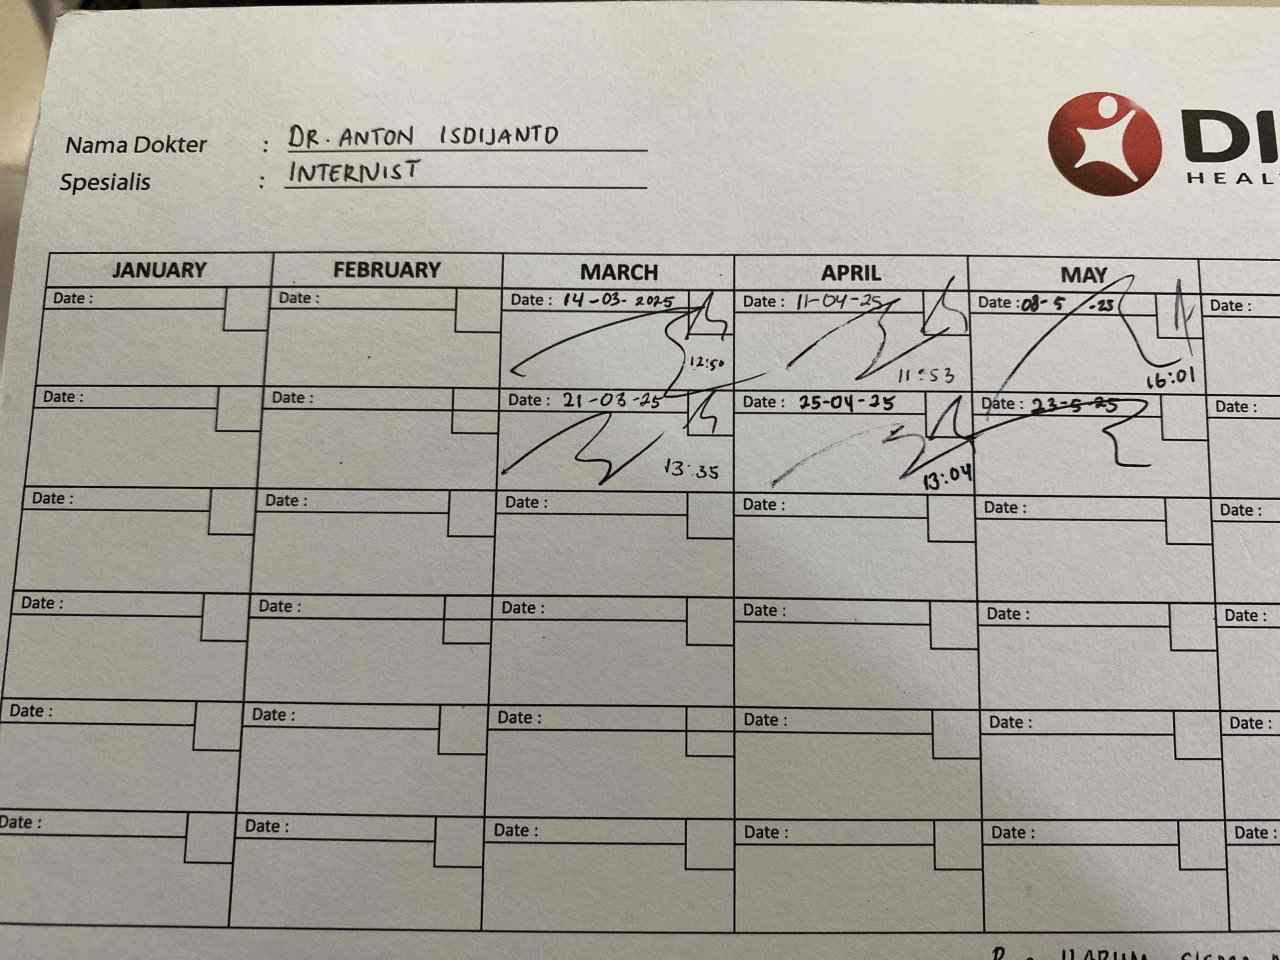 Nama Dokter : DR. ANTON ISDIJANTO
Spesialis : INTERNIST
DI
HEAL
JANUARY FEBRUARY MARCH APRIL MAY
Date : Date : Date : 14-03-2025 Date : 11-04-25 Date : 08-5-25 Date :
12:50 11:53 16:01
Date : Date : Date : 21-03-25 Date : 25-04-25 Date : 23-5-25 Date :
13:35 13:04
Date : Date : Date : Date : Date : Date :
Date : Date : Date : Date : Date : Date :
Date : Date : Date : Date : Date : Date :
Date : Date : Date : Date : Date : Date :